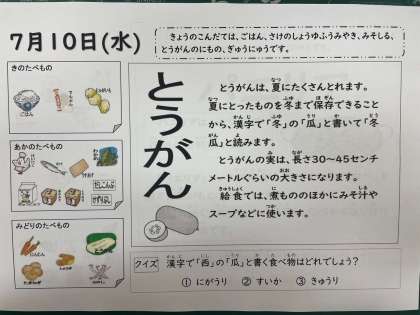 7月10日(水)
きょうのこんだては、ごはん、さけのしょうゆふうみやき、みそしる、
とうがんのにもの、ぎゅうにゅうです。
きのたべもの
ごはん
あかのたべもの
みどりのたべもの
にんじん
とうがん
とうがんは、夏にたくさんとれます。
夏にとったものを冬まで保存できること
から、漢字で「冬」の「瓜」と書いて「冬
瓜」と読みます。
とうがんの実は、長さ30~45センチ
メートルぐらいの大きさになります。
給食では、煮もののほかにみそ汁や
スープなどに使います。
クイズ 漢字で「西」の「瓜」と書く食べ物はどれでしょう?
① にがうり ② すいか ③ きゅうり